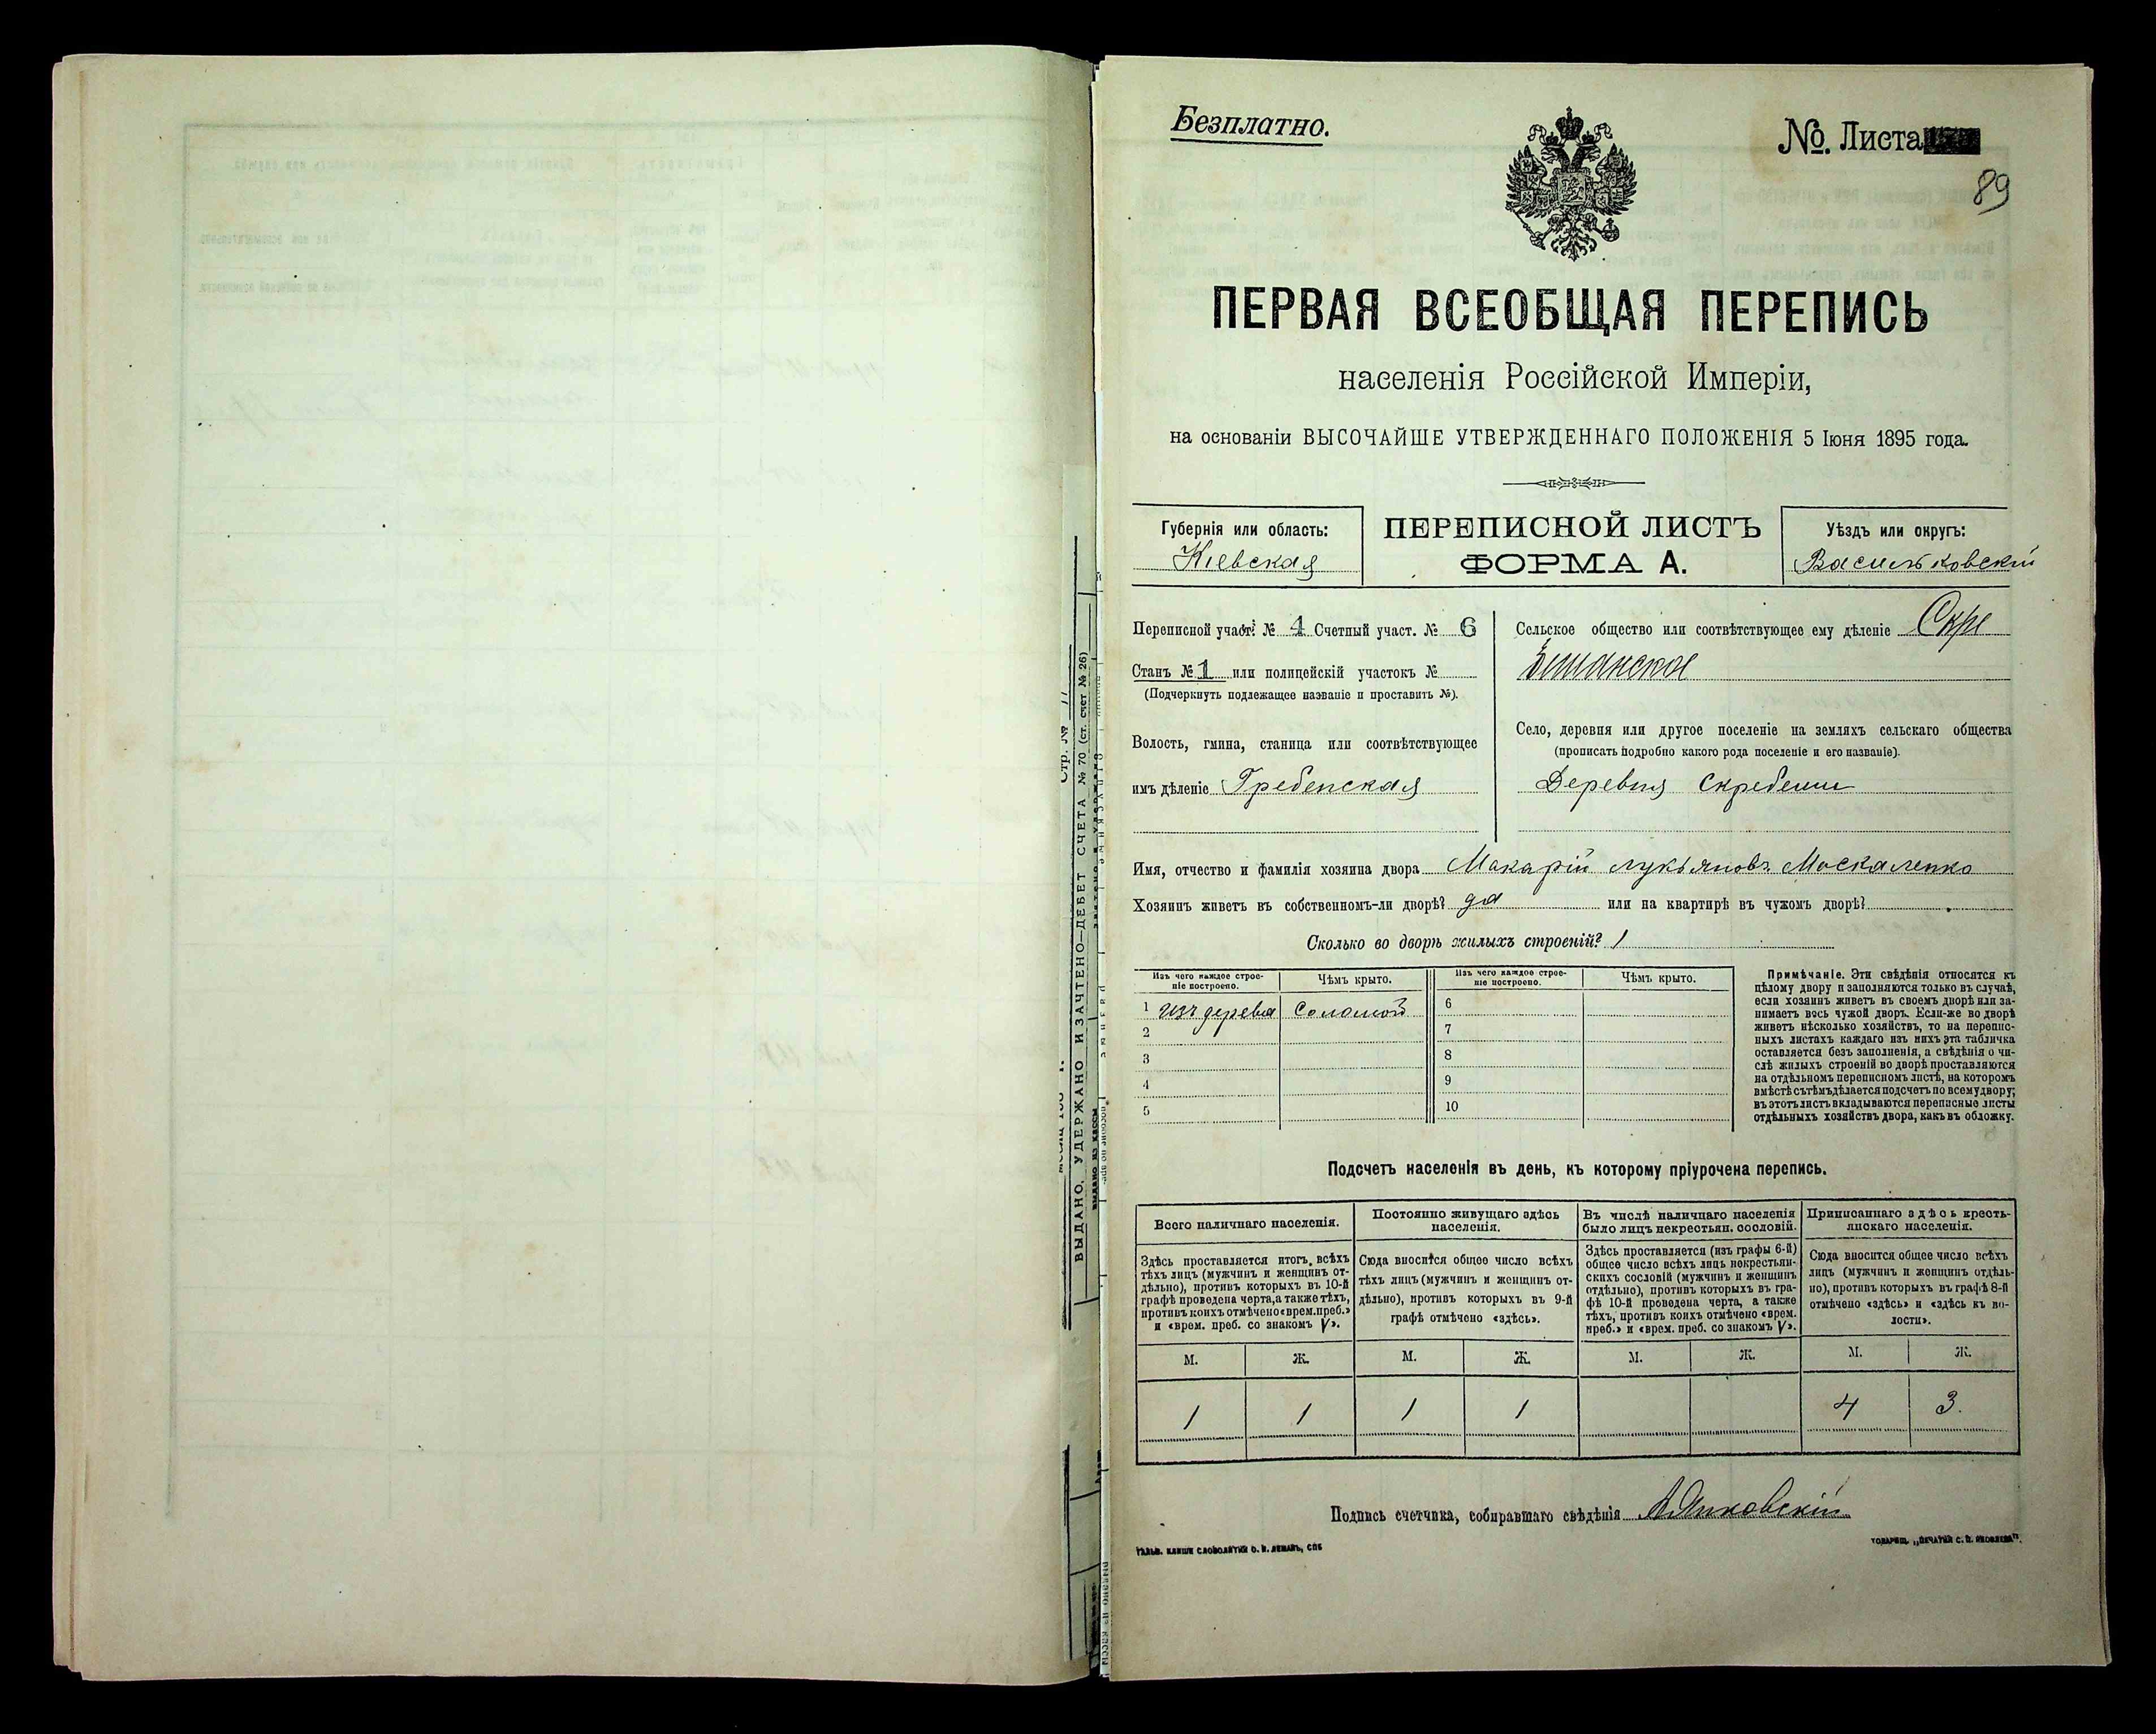 Безплатно.
№. Листа
89
ПЕРВАЯ ВСЕОБЩАЯ ПЕРЕПИСЬ
населенія Россійской Имперіи,
на основаніи ВЫСОЧАЙШЕ УТВЕРЖДЕННАГО ПОЛОЖЕНІЯ 5 Іюня 1895 года.
Губернія или область:
Кіевская
ПЕРЕПИСНОЙ ЛИСТЪ
ФОРМА А.
Уѣздъ или округъ:
Васильковскій
Переписной участ. № 4 Счетный участ. № 6
Станъ № 1 или полицейскій участокъ №
(Подчеркнуть подлежащее названіе и проставить №).
Волость, гмина, станица или соотвѣтствующее
имъ дѣленіе Гребенская
Сельское общество или соотвѣтствующее ему дѣленіе Скре
Село, деревня или другое поселеніе на земляхъ сельскаго общества
(прописать подробно какого рода поселеніе и его названіе).
Деревня Скребеши
Имя, отчество и фамилія хозяина двора Макарій Лукьяновъ Москаленко
Хозяинъ живетъ въ собственномъ-ли дворѣ? да или на квартирѣ въ чужомъ дворѣ?
Сколько во дворѣ жилыхъ строеній? 1
Изъ чего каждое строе-
ніе построено.
Чѣмъ крыто.
Изъ чего каждое строе-
ніе построено.
Чѣмъ крыто.
1 изъ дерева Соломой 6
2 7
3 8
4 9
5 10
Примѣчаніе. Эти свѣдѣнія относятся къ
цѣлому двору и заполняются только въ случаѣ,
если хозяинъ живетъ въ своемъ дворѣ или за-
нимаетъ весь чужой дворъ. Если-же во дворѣ
живетъ нѣсколько хозяйствъ, то на перепис-
ныхъ листахъ каждаго изъ нихъ эта табличка
оставляется безъ заполненія, а свѣдѣнія о чи-
слѣ жилыхъ строеній во дворѣ проставляются
на отдѣльномъ переписномъ листѣ, на которомъ
вмѣстѣ съ тѣмъ дѣлается подсчетъ по всему двору;
въ этотъ листъ вкладываются переписные листы
отдѣльныхъ хозяйствъ двора, какъ въ обложку.
Подсчетъ населенія въ день, къ которому пріурочена перепись.
Всего наличнаго населенія.
Здѣсь проставляется итогъ всѣхъ
тѣхъ лицъ (мужчинъ и женщинъ от-
дѣльно), противъ которыхъ въ 10-й
графѣ проведена черта, а также тѣхъ,
противъ коихъ отмѣчено «врем. преб.»
и «врем. преб. со знакомъ V».
Постоянно живущаго здѣсь
населенія.
Сюда вносится общее число всѣхъ
тѣхъ лицъ (мужчинъ и женщинъ от-
дѣльно), противъ которыхъ въ 9-й
графѣ отмѣчено «здѣсь».
Въ числѣ наличнаго населенія
было лицъ некрестьян. сословій.
Здѣсь проставляется (изъ графы 6-й)
общее число всѣхъ лицъ некрестьян-
скихъ сословій (мужчинъ и женщинъ
отдѣльно), противъ которыхъ въ гра-
фѣ 10-й проведена черта, а также
тѣхъ, противъ коихъ отмѣчено «врем.
преб.» и «врем. преб. со знакомъ V».
Приписаннаго здѣсь кресть-
янскаго населенія.
Сюда вносится общее число всѣхъ
лицъ (мужчинъ и женщинъ отдѣль-
но), противъ которыхъ въ графѣ 8-й
отмѣчено «здѣсь» и «здѣсь къ во-
лости».
М. Ж. М. Ж. М. Ж. М. Ж.
1 1 1 1 4 3.
Подпись счетчика, собиравшаго свѣдѣнія
ГАЛЬВ. КЛИШЕ СЛОВОЛИТНИ О. И. ЛЕМАНЪ, СПБ
ТОВАРИЩ. „ПЕЧАТНИ С. П. ЯКОВЛЕВА".
ВЫДАНО, УДЕРЖАНО И ЗАЧТЕНО—ДЕБЕТ СЧЕТА № 70 (ст. счет № 26)